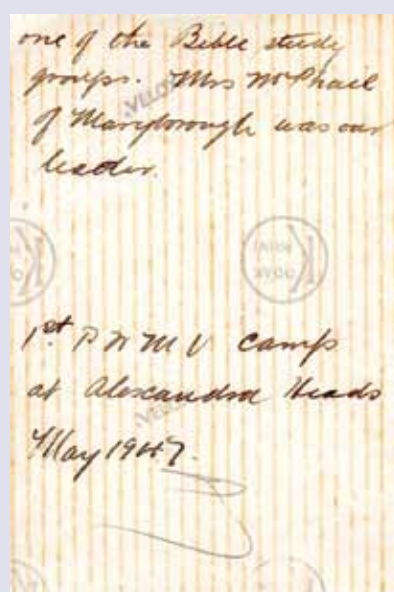 one of the Bible study
groups. Mrs McPhail
of Maryborough was our
leader.
1st P W M U camp
at Alexandra Heads
May 1947.